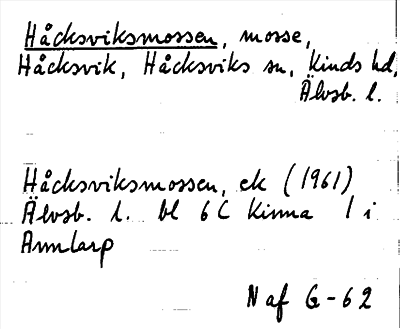 Håcksviksmossen, mosse,
Håcksvik, Håcksviks sn, Kinds hd,
Älvsb. l.
Håcksviksmossen, ek (1961)
Älvsb. l. bl 6C Kinna 1 i
Annlarp
N af G-62